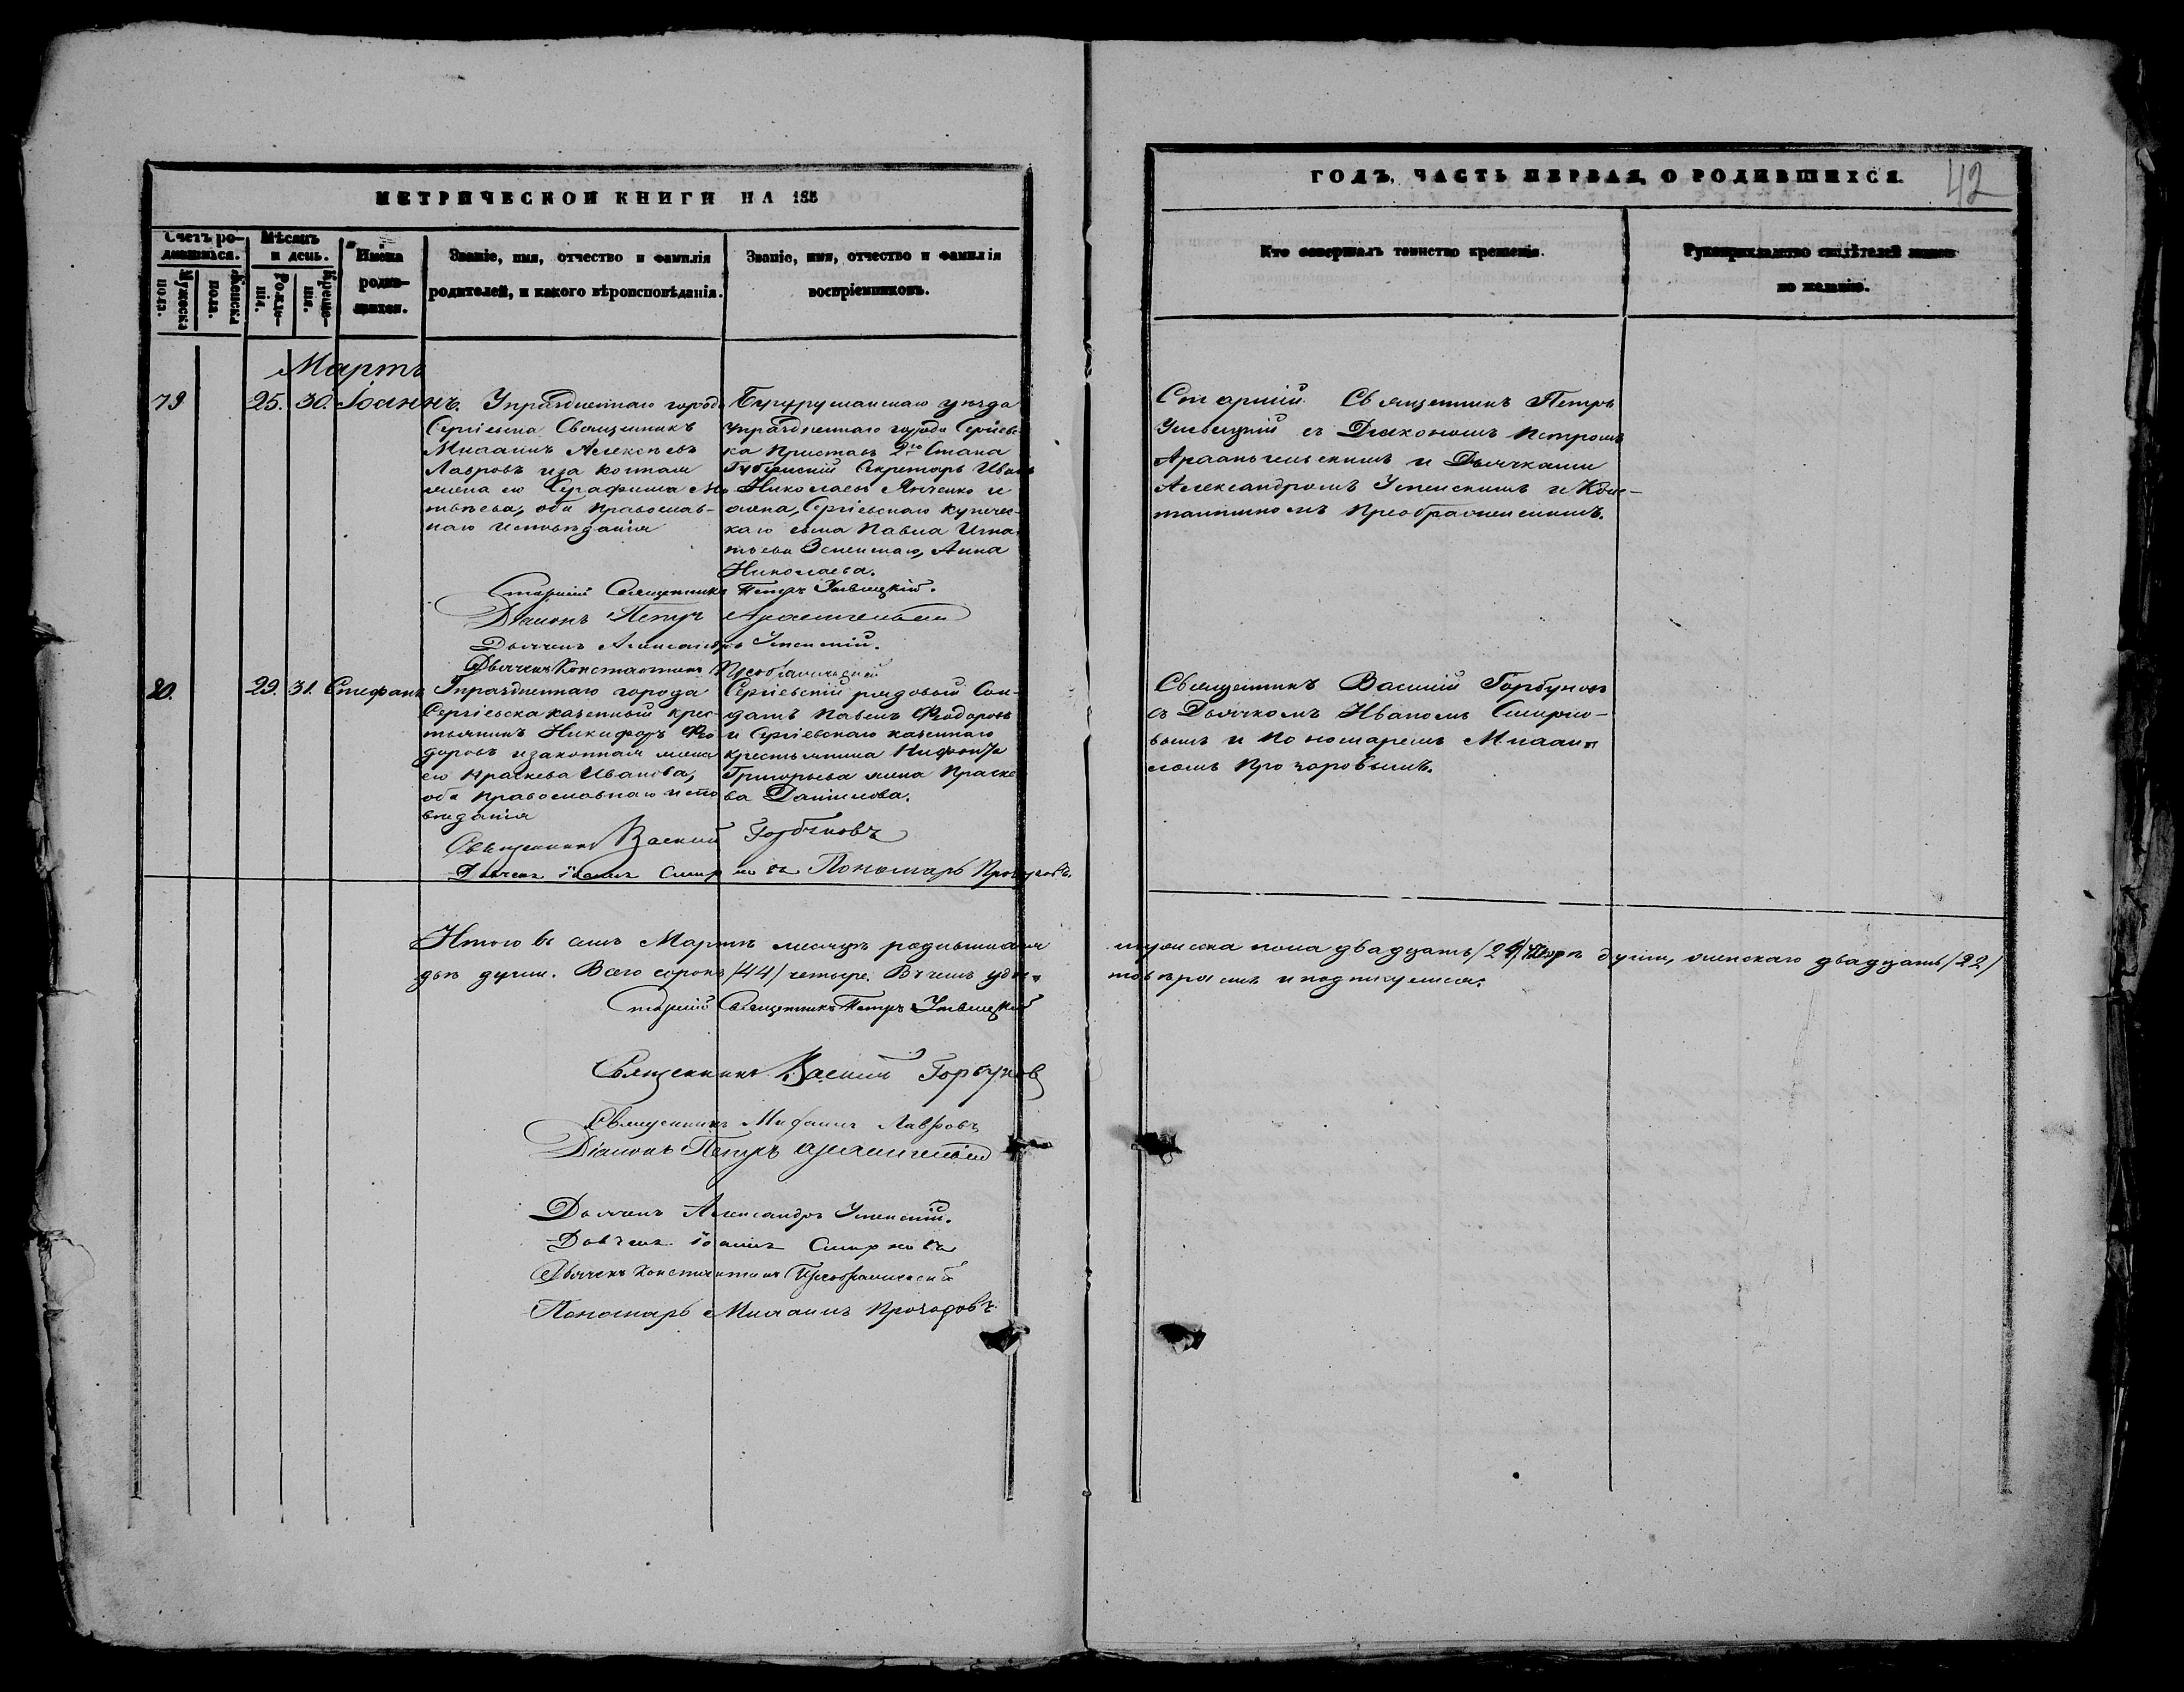 МЕТРИЧЕСКОЙ КНИГИ НА 185
Счетъ ро-
дившихся.
Мужеска
пола.
Женска
пола.
Мѣсяцъ
и день.
Рожде-
нія.
Креще-
нія.
Имена
родив-
шихся.
Званіе, имя, отчество и фамилія
родителей, и какого вѣроисповѣданія.
Званіе, имя, отчество и фамилія
воспріемниковъ.
Мартъ
79 25. 30. Іоаннъ.
Упраздненнаго города
Сергіевска Священникъ
Михаилъ Алексѣевъ
Лавровъ и законная
жена его Серафима Ма
твѣева, оба православ-
наго исповѣданія
Бугурусланскаго уѣзда
упраздненнаго города Сергіевс-
ка приставъ 2го Стана
Губернскій Секретарь Иванъ
Николаевъ Янченко и
жена, Сергіевскаго купечес-
каго сына Павла Игна
тьева Анна
Николаева.
Старшій Священникъ Петръ Ульвецкій.
Діаконъ Петръ Архангельскій
Дьячекъ Александръ Успенскій.
Дьячекъ Константинъ Преображенскій
80. 29. 31. Стефанъ
Упраздненнаго города
Сергіевска казенный крес-
тьянинъ Никифоръ Ѳео
доровъ и законная жена
его Праскева Иванова,
оба православнаго испо
вѣданія
Сергіевскій рядовой Сол-
датъ Павелъ Ѳеодоровъ
и Сергіевскаго казеннаго
крестьянина Нифонта
Григорьева жена Праске
ва Данилова.
Священникъ Василій Горбуновъ
Дьячекъ Іоаннъ Смирновъ Пономарь Прохоровъ.
Итого въ семъ Мартѣ месяцѣ родившихся
двѣ души. Всего сорокъ /44/ четыре. Въ чемъ удос
Старшій Священникъ Петръ Ульвецкій
Священникъ Василій Горбунов
Священникъ Михаилъ Лавровъ
Діаконъ Петръ Архангельскій
Дьячекъ Александръ Успенскій.
Дьячекъ Іоаннъ Смирновъ
Дьячекъ Константинъ Преображенскій
Пономарь Михаилъ Прохоровъ
ГОДЪ, ЧАСТЬ ПЕРВАЯ, О РОДИВШИХСЯ.
42
Кто совершалъ таинство крещенія.
Рукоприкладство свидѣтелей записи
по желанію.
Старшій Священникъ Петръ
Ульвецкій съ Діакономъ Петромъ
Архангельскимъ и Дьячками
Александромъ Успенскимъ и Конс-
тантиномъ Преображенскимъ.
Священникъ Василій Горбуновъ
съ Дьячкомъ Иваномъ Смирно-
вымъ и Пономаремъ Михаи-
ломъ Прохоровымъ.
мужеска пола двадцать/22/ двѣ души, женскаго двадцать/22/
товѣряемъ и подписуемся.